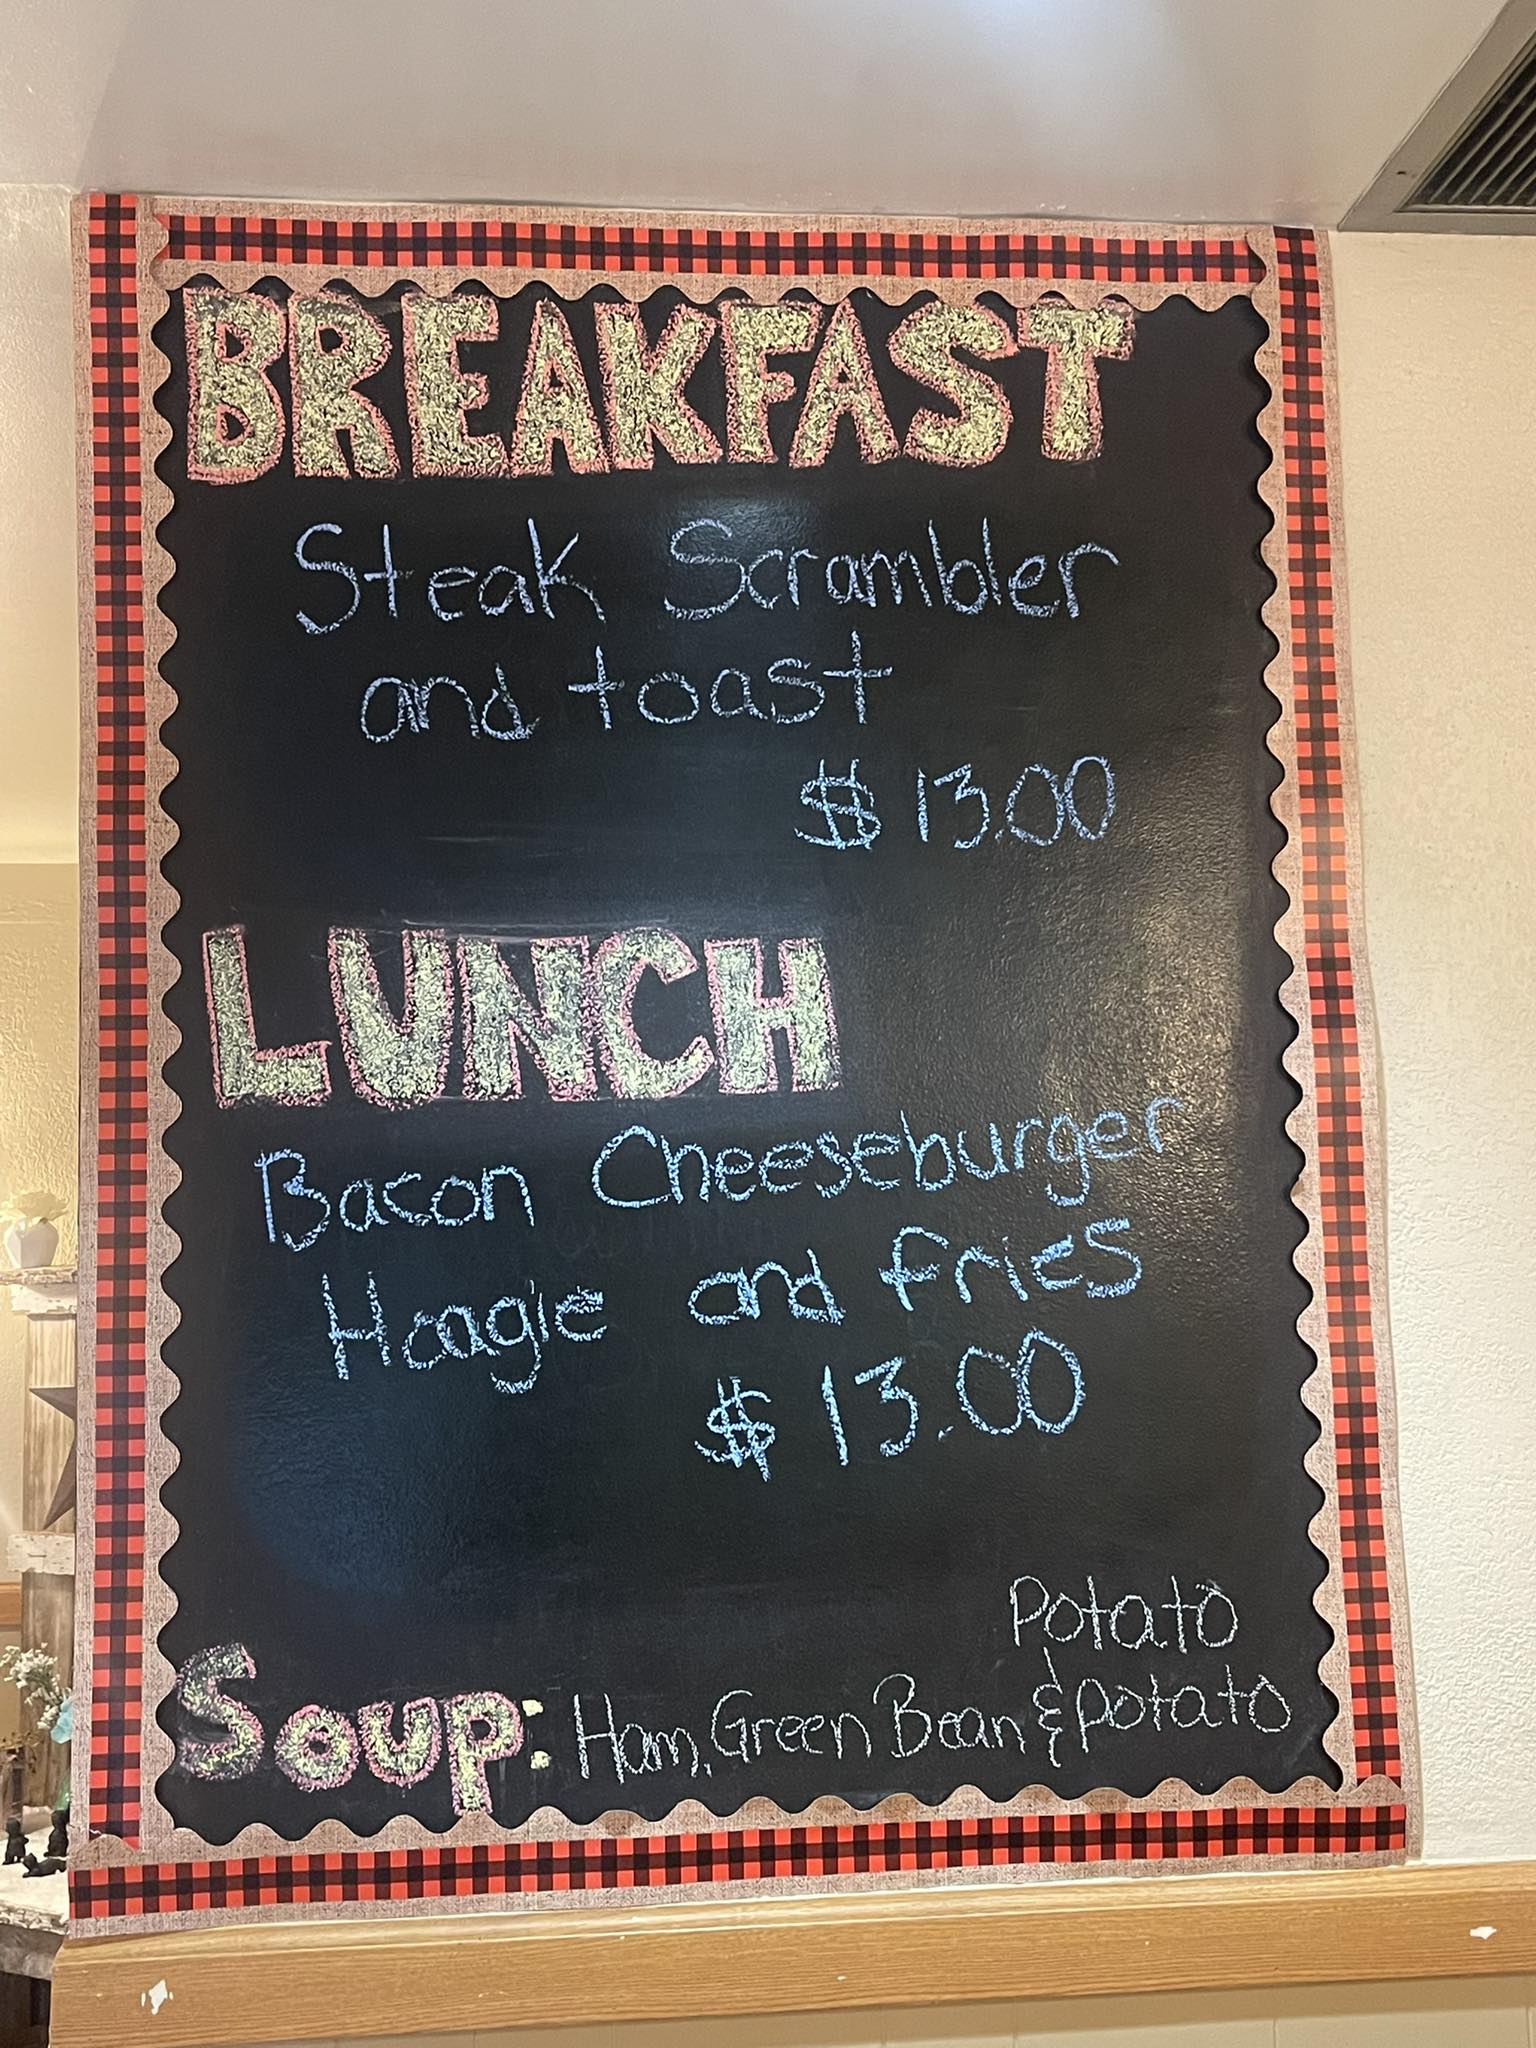 BREAKFAST
Steak Scrambler
and toast
$13.00
LUNCH
Bacon Cheeseburger
Hoagie and fries
$13.00
Potato
Soup: Ham, Green Bean & Potato